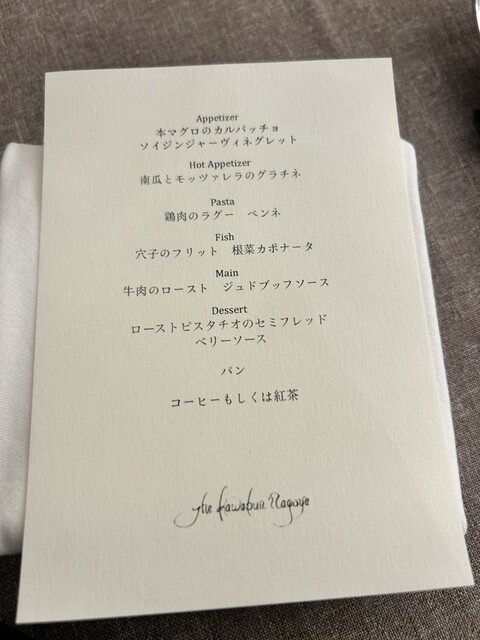 Appetizer
本マグロのカルパッチョ
ソイジンジャーヴィネグレット
Hot Appetizer
南瓜とモッツァレラのグラチネ
Pasta
鶏肉のラグー　ペンネ
Fish
穴子のフリット　根菜カポナータ
Main
牛肉のロースト　ジュドブッフソース
Dessert
ローストピスタチオのセミフレッド
ベリーソース
パン
コーヒーもしくは紅茶
The Kawabun Nagoya